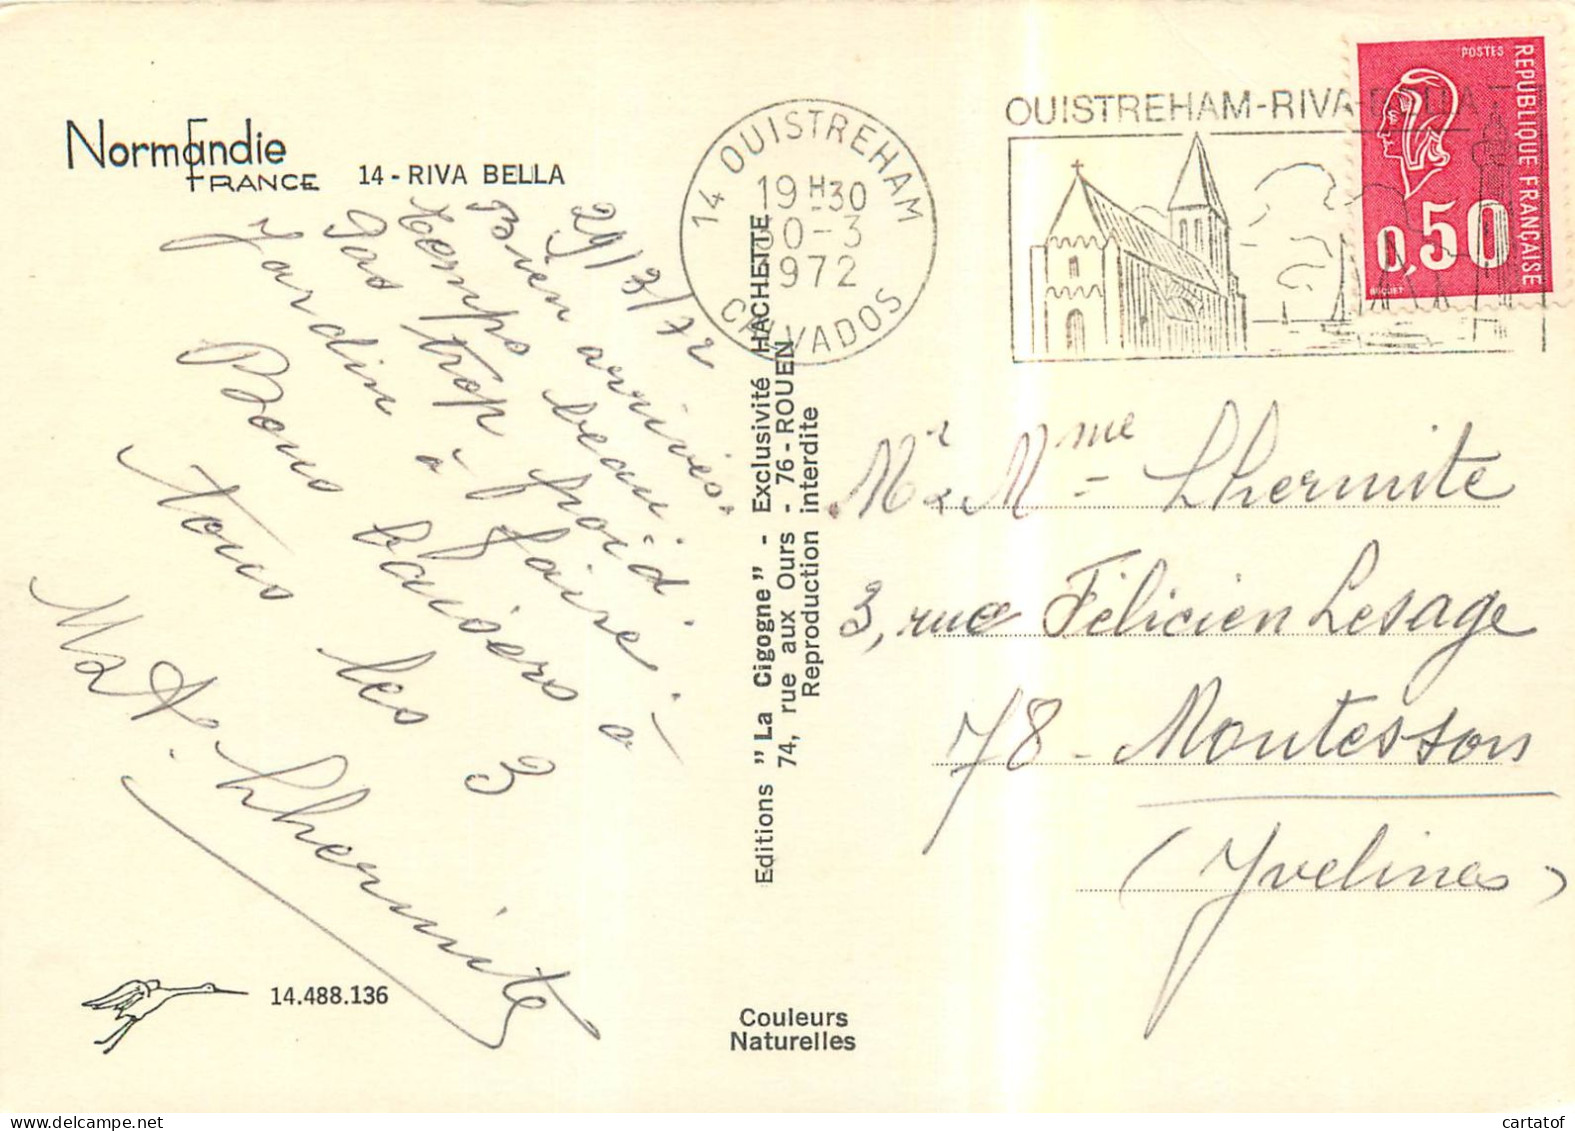 Normandie
FRANCE
14 - RIVA BELLA
29/3/72
Bien arrivés.
temps beau,
pas trop froid.
Jardin à faire. -
Bons baisers à
tous les 3
M. A. Lhermite
14.488.136
Editions "La Cigogne" - Exclusivité HACHETTE
74, rue aux Ours - 76 - ROUEN
Reproduction interdite
Couleurs
Naturelles
14 OUISTREHAM
19 H 30
30-3
1972
CALVADOS
OUISTREHAM-RIVA-BELLA
POSTES
REPUBLIQUE FRANÇAISE
0,50
BEQUET
Mr & Mme Lhermite
3, rue Félicien Lesage
78 - Montesson
(Yvelines)
cartatof